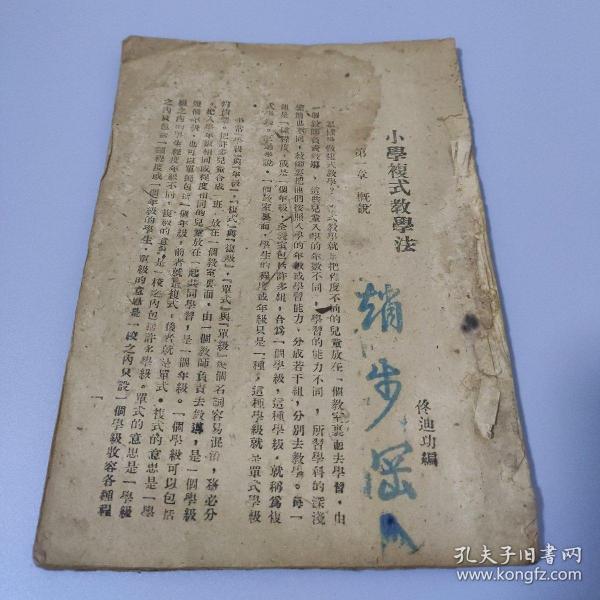 小學複式教學法
佟迪功編
趙步罡
第一章 概說
式教學就是把程度不同的兒童放在一個教室裏面去學習，由
一個教師負責教導，這些兒童入學的年數不同，學習的能力不同，所習學科的深淺
也不同，教師要把他們按照入學的年數或學習能力，分成若干組，分別去教學。每一
組是一種程度，或是一個年級，全教室包括許多組，合為一個學級，這種學級，就稱為複
式學級。一個教室裏面，學生的程度或年級只是一種，這種學級就是單式學級
「學級」與「年級」，「複式」與「複級」，「單式」與「單級」幾個名詞容易混淆，務必分
把許多兒童合成一班，放在一個教室裏面，由一個教師負責去教導，是一個學級
把入學年數相同或程度相同的兒童放在一起共同學習，是一個年級。一個學級可以包括
幾個年級，也可以單獨包括一個年級，前者就是複式，後者就是單式。複式的意思是一學
級之內的學生程度年級不同，複級的意思是一校之內包括許多學級。單式的意思是一學級
之內只包括一種程度或一個年級的學生，單級的意思是一校之內只設一個學級收容各種程
孔夫子旧书网
www.kongfz.com